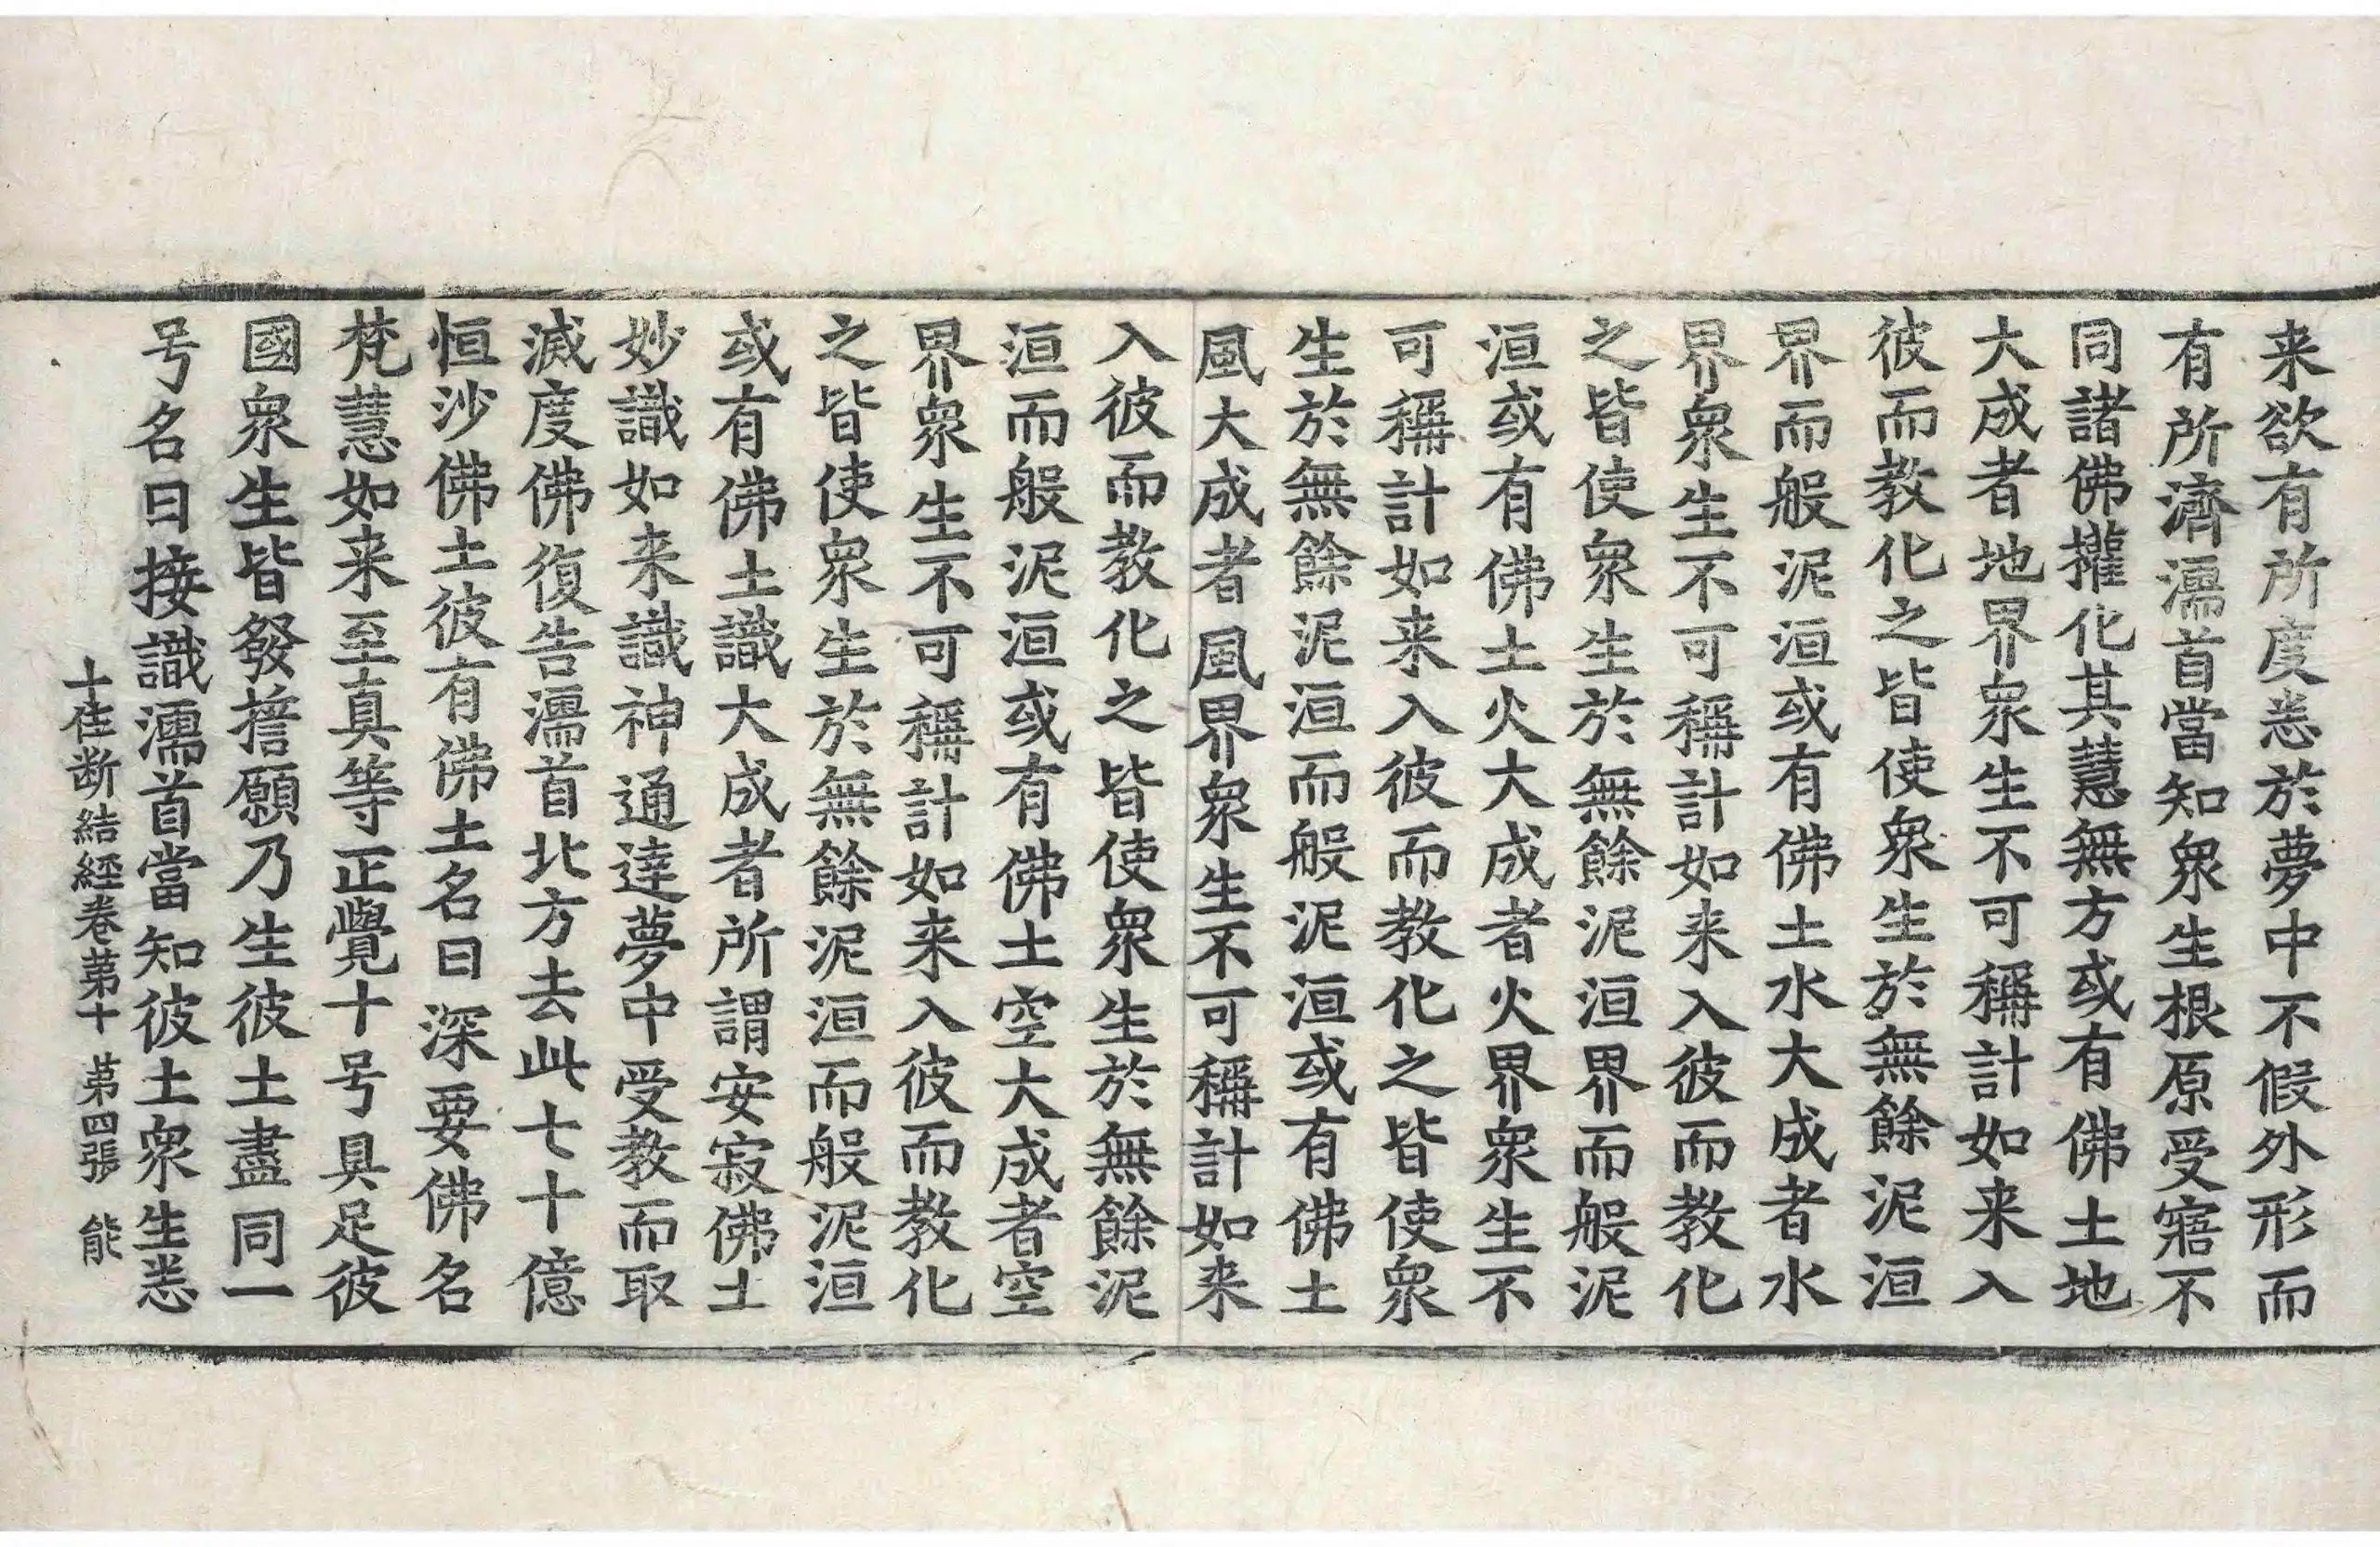 来欲有所度悉於夢中不假外形而
有所濟濡首當知衆生根原受寤不
同諸佛權化其慧無方或有佛土地
大成者地界衆生不可稱計如来入
彼而教化之皆使衆生於無餘泥洹
界而般泥洹或有佛土水大成者水
界衆生不可稱計如来入彼而教化
之皆使衆生於無餘泥洹界而般泥
洹或有佛土火大成者火界衆生不
可稱計如来入彼而教化之皆使衆
生於無餘泥洹而般泥洹或有佛土
風大成者風界衆生不可稱計如来
入彼而教化之皆使衆生於無餘泥
洹而般泥洹或有佛土空大成者空
界衆生不可稱計如来入彼而教化
之皆使衆生於無餘泥洹而般泥洹
或有佛土識大成者所謂安寂佛土
妙識如来識神通達夢中受教而取
滅度佛復告濡首北方去此七十億
恒沙佛土彼有佛土名曰深要佛名
梵慧如来至真等正覺十号具足彼
國衆生皆發擔願乃生彼土盡同一
号名曰接識濡首當知彼土衆生悉
十住断結經卷第十 第四張 能